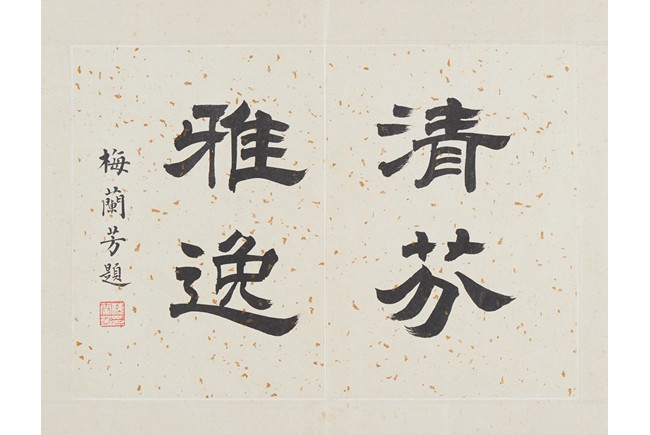 清芬
雅逸
梅蘭芳題